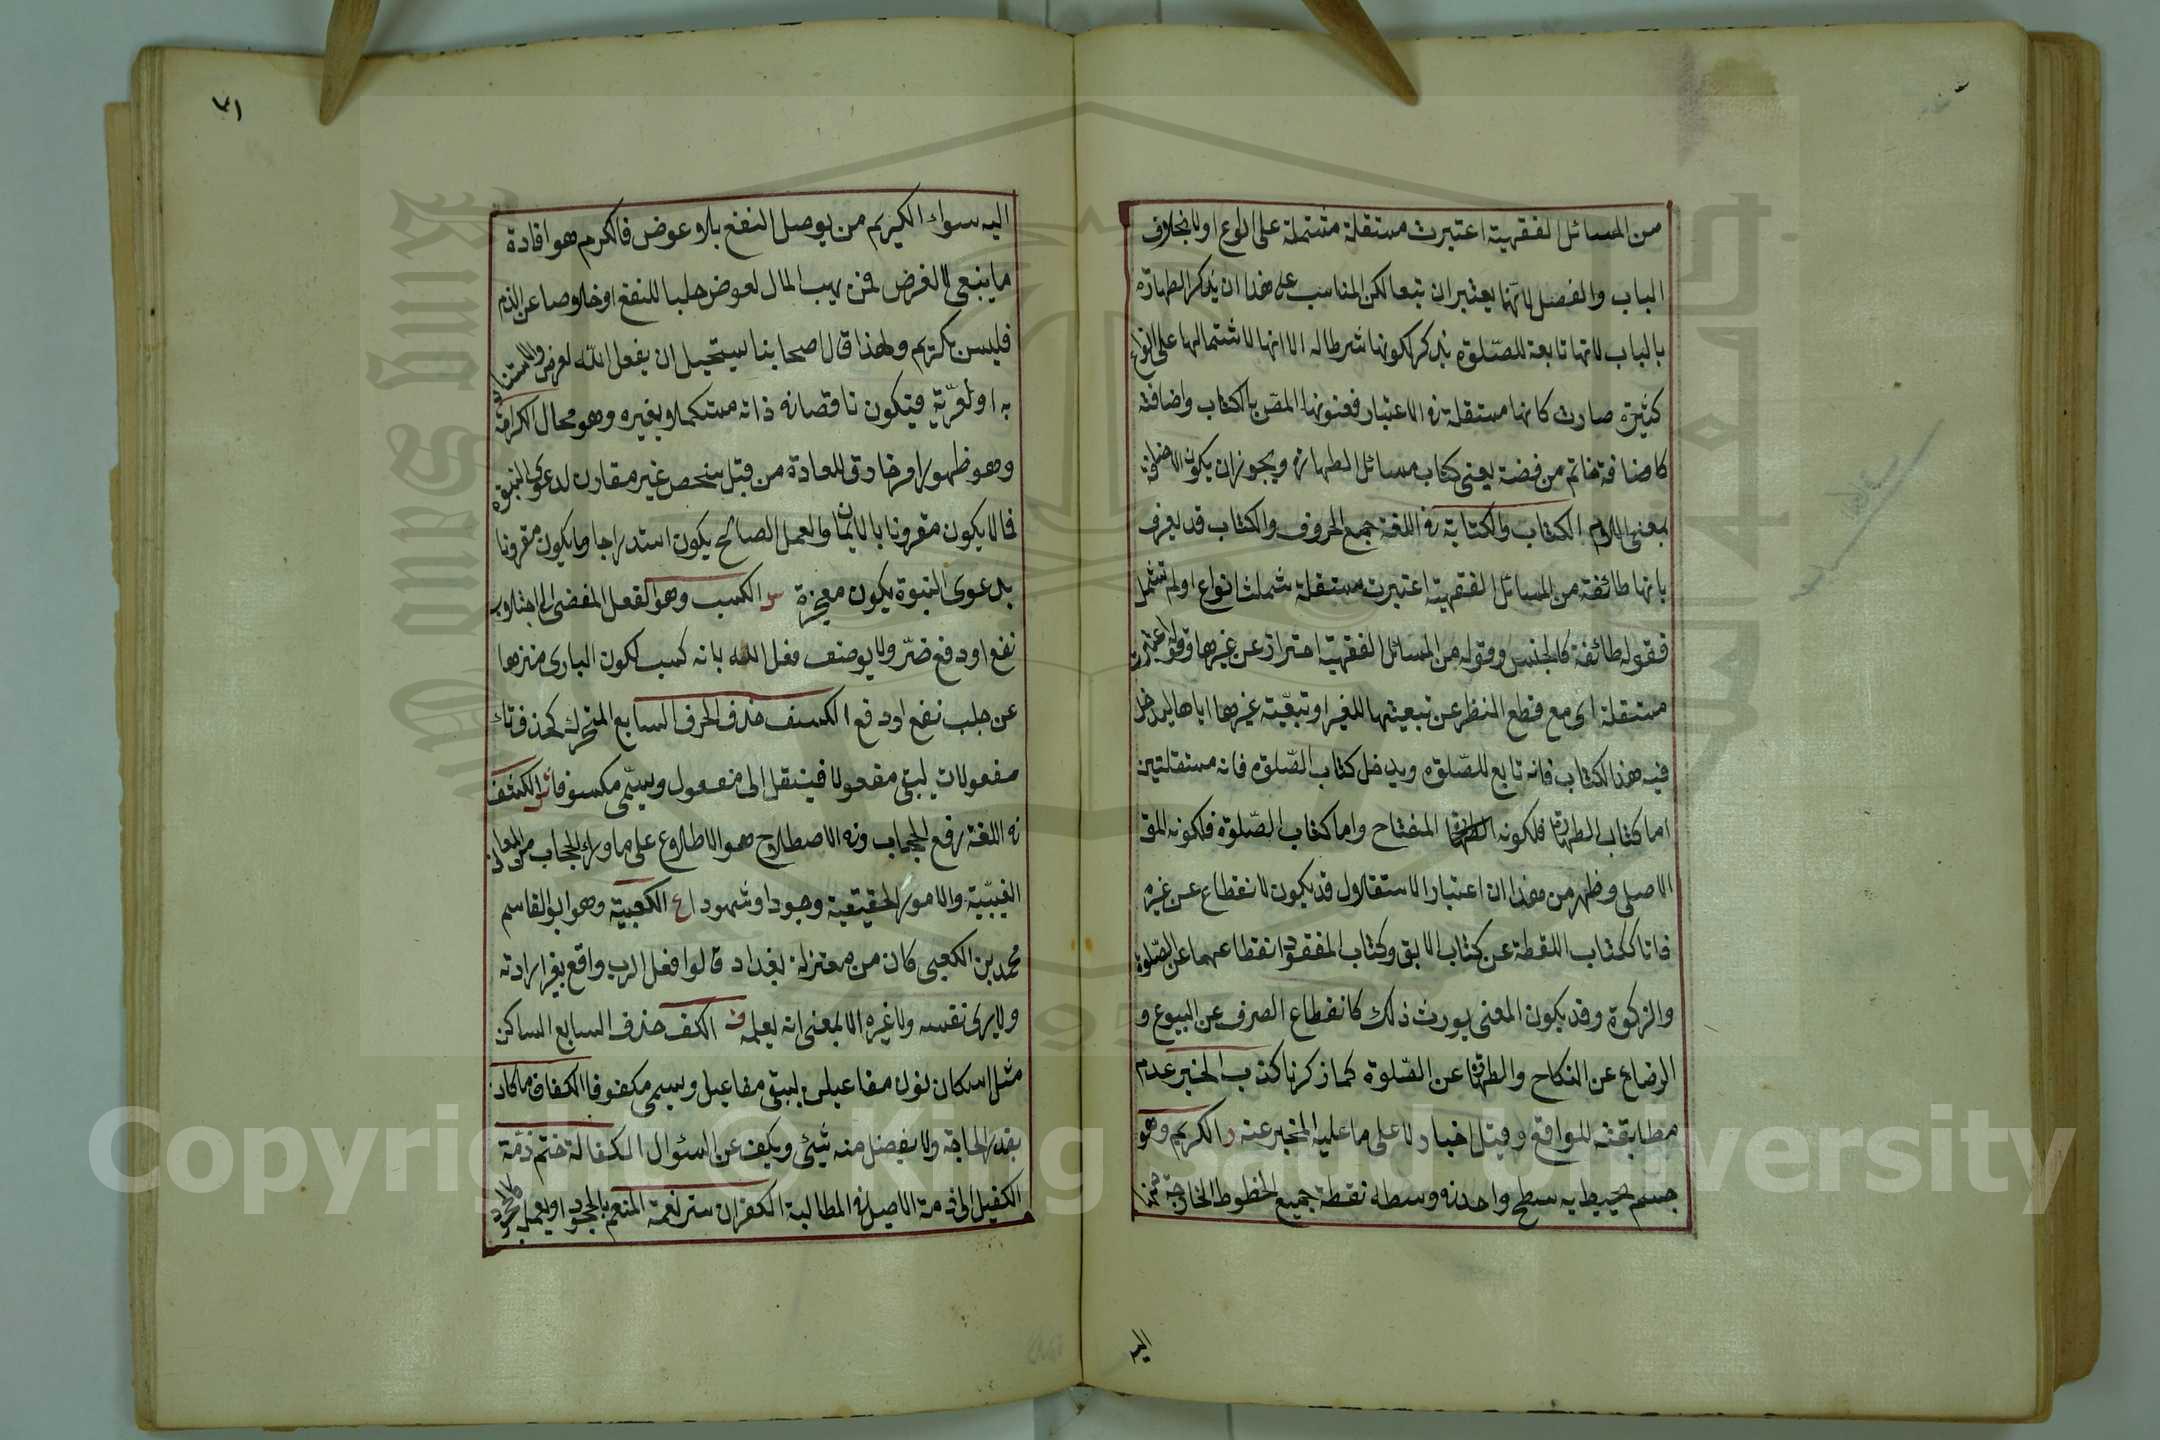 من المسائل الفقهية اعتبرت مستقلة مشتملة على انواع اولا بخلاف
الباب والفصل لانهما يعتبران تبعا لكن المناسب على هذا ان يذكر الطهارة
بالباب لانها تابعة للصلوة يذكر لكونها شرطا له الا انها لاشتمالها على انواع
كثيرة صارت كانها مستقلة فى الاعتبار فعنونها المص بالكتاب واضافته
كاضافة خاتم من فضة يعنى كتاب مسائل الطهارة ويجوز ان يكون الاضافة
بمعنى اللام الكتاب والكتابة فى اللغة جمع الحروف والكتاب قد يعرف
بانها طائفة من المسائل الفقهية اعتبرت مستقلة شملت انواع او لم تشمل
فقوله طائفة كالجنس وقوله من المسائل الفقهية احتراز عن غيرها وقوله اعتبرت
مستقلة اى مع قطع النظر عن تبعيتها للغير او تبعية غيرها اياها ليدخل
فيه هذا الكتاب فانه تابع للصلوة ويدخل كتاب الصلوة فانه مستقلتين
اما كتاب الطهارة فلكونه المفتاح واما كتاب الصلوة فلكونه المق
الاصلى وظهر من هذا ان اعتبار الاستقلال قد يكون لانقطاع عن غيره
ذاتا ككتاب اللقطة عن كتاب الابق وكتاب المفقود انقطاعهما عن الصلوة
والزكوة وقد يكون المعنى يورث ذلك كانقطاع الصرف عن البيوع و
الرضاع عن النكاح والطهارة عن الصلوة كما ذكرنا كذب الخبر عدم
مطابقته للواقع وقيل اخبار لا على ما عليه المخبر عنه ر الكريم وهو
جسم يحيط به سطح واحد فى وسطه نقطة جميع الخطوط الخارجة منها
اليه
٣١
اليه سواء الكريم من يوصل النفع بلا عوض فالكرم هو افادة
ما ينبغى لا لغرض فمن يهب المال لعوض جلبا للنفع او خلاصا عن الذم
فليس بكريم ولهذا قال اصحابنا يستحيل ان يفعل الله لغرض والا استفاد
به اولوية فيكون ناقصا فى ذاته مستكملا بغيره وهو محال الكرامة
وهو ظهور امر خارق للعادة من قبل شخص غير مقارن لدعوى النبوة
فما لا يكون مقرونا بالايمان والعمل الصالح يكون استدراجا وما يكون مقرونا
بدعوى النبوة يكون معجزة س الكسب وهو الفعل المفضى الى اجتلاب
نفع او دفع ضر ولا يوصف فعل الله بانه كسب لكون البارى منزها
عن جلب نفع او دفع الكسف حذف الحرف السابع المتحرك كحذف تاء
مفعولات ليبقى مفعولا فينقل الى مفعول ويسمى مكسوفا ش الكشف
فى اللغة رفع الحجاب وفى الاصطلاح هو الاطلاع على ما وراء الحجاب من المعانى
الغيبية والامور الحقيقية وجودا وشهودا ع الكعبية وهو ابو القاسم
محمد بن الكعبى كان من معتزلة بغداد قالوا فعل الرب واقع بغير ارادته
ولا يرى نفسه ولا غيره الا بمعنى انه يعلمه ف الكف حذف السابع الساكن
مثل اسكان نون مفاعيلن ليبقى مفاعيل ويسمى مكفوفا الكفاف ما كان
بقدر الحاجة ولا يفضل منه شئ ويكف عن السؤال الكفالة ضم ذمة
الكفيل الى ذمة الاصيل فى المطالبة الكفران ستر نعمة المنعم بالجحود او بعمل